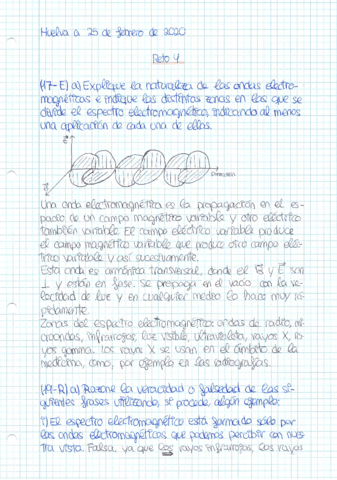 Huelva a 25 de febrero de 2020
Reto 4
(17-E) a) Explique la naturaleza de las ondas electro-
magnéticas e indique las distintas zonas en las que se
divide el espectro electromagnético, indicando al menos
una aplicación de cada una de ellas.
E
Dirección
B
Una onda electromagnética es la propagación en el es-
pacio de un campo magnético variable y otro eléctrico
también variable. El campo eléctrico variable produce
el campo magnético variable que produce otro campo eléc-
trico variable y así sucesivamente.
Esta onda es armónica transversal, donde el B y E son
⊥ y están en fase. Se propaga en el vacío con la ve-
locidad de luz y en cualquier medio lo hace muy rá-
pidamente.
Zonas del espectro electromagnético: ondas de radio, mi-
croondas, infrarrojos, luz visible, ultravioleta, rayos X, ra-
yos gamma. Los rayos X se usan en el ámbito de la
medicina, como, por ejemplo en las radiografías.
(19-R) a) Razone la veracidad o falsedad de las si-
guientes frases utilizando, si procede, algún ejemplo:
i) El espectro electromagnético está formado sólo por
las ondas electromagnéticas que podemos percibir con nues-
tra vista. Falsa, ya que los rayos infrarrojos, los rayos